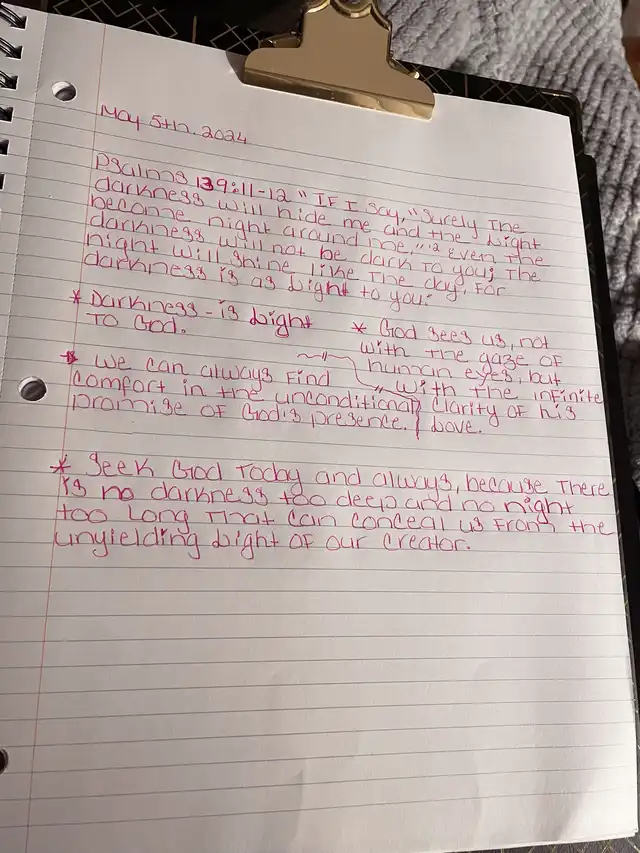 May 5th. 2024
Psalms 139:11-12 "IF I say, "Surely The
darkness will hide me and the Light
become night around me," 12 Even the
darkness will not be dark to you; The
night will shine like The day, For
darkness is as Light to you.
* Darkness - is Light
To God.
* God sees us, not
with the gaze of
human eyes, but
with The infinite
clarity of his
Love.
* We can always Find
comfort in the unconditional
promise of God's presence.
* Seek God Today and always, because There
is no darkness too deep and no night
too Long That can conceal us From the
unyielding Light of our Creator.